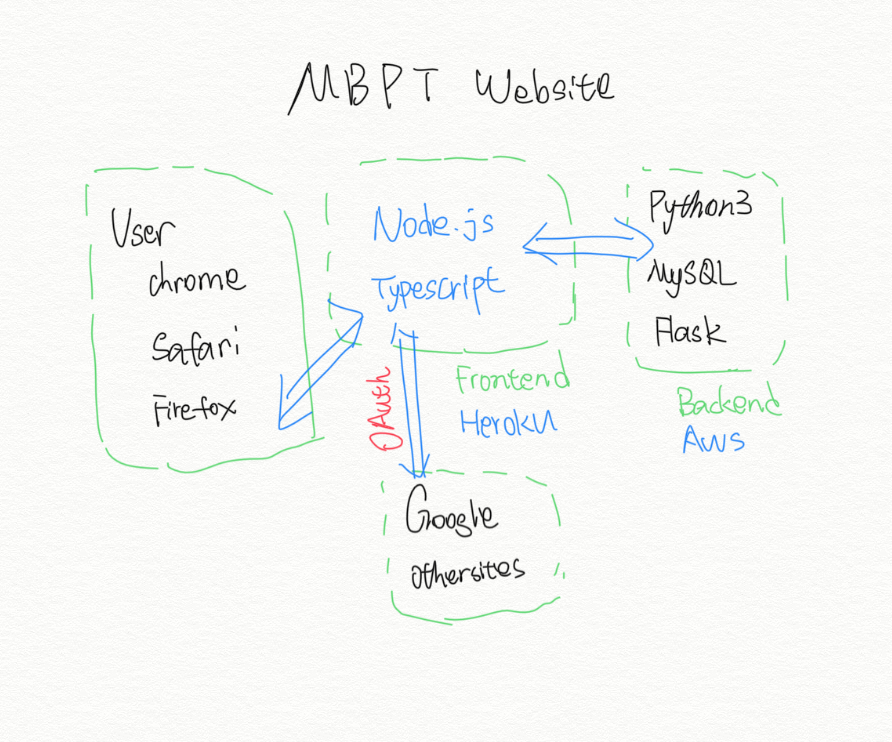 MBPT Website
User
chrome
Safari
Firefox
Node.js
Typescript
Frontend
Heroku
Python3
MySQL
Flask
Backend
AWS
OAuth
Google
othersites